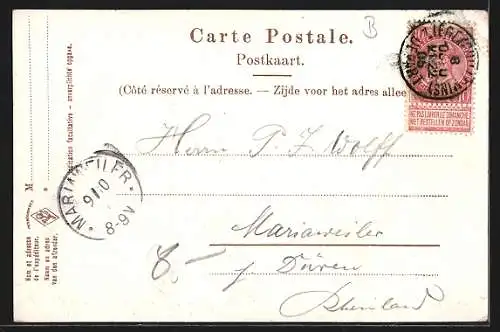 B
Carte Postale.
Postkaart.
(Côté réservé à l'adresse. — Zijde voor het adres allee
NE PAS LIVRER LE DIMANCHE
NIET BESTELLEN OP ZONDAG
Herrn P. J. Wolff
MARIAWEILER
8-9V
Mariaweiler
8,-
Düren
Rheinland
M
Nom et adresse
de l'expéditeur.
Naam en adres
van den afzender.